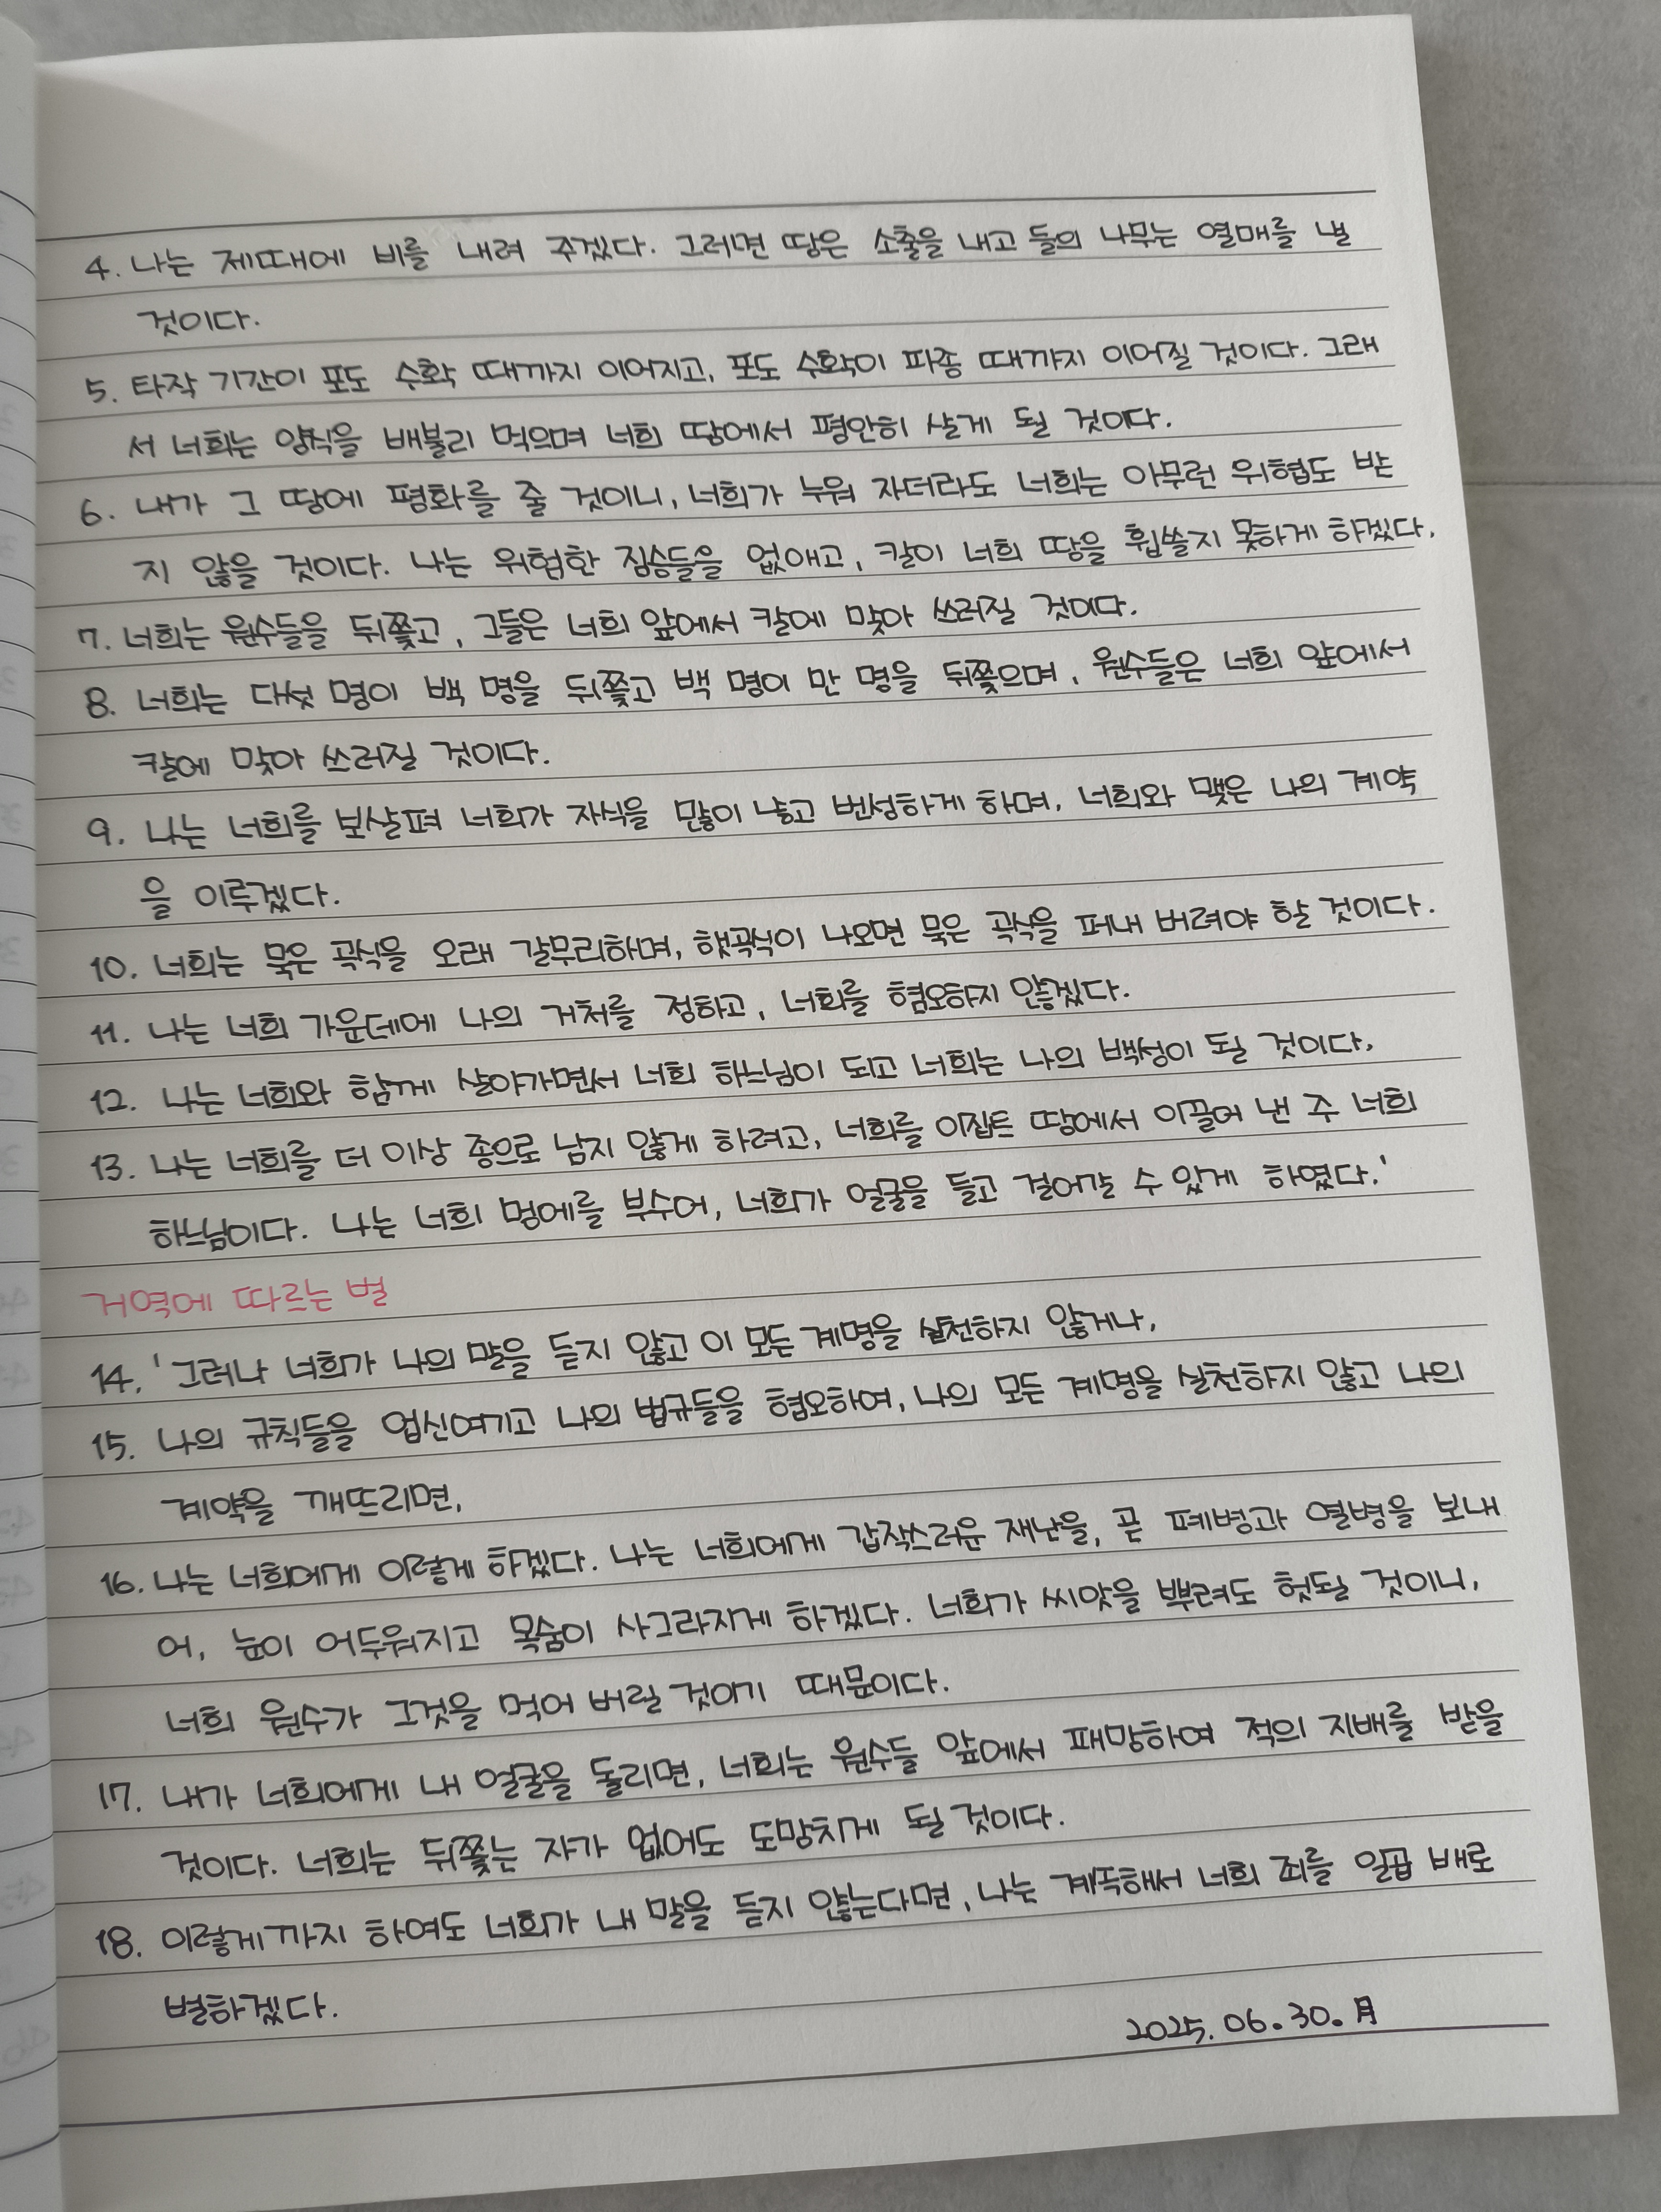 4. 나는 제때에 비를 내려 주겠다. 그러면 땅은 소출을 내고 들의 나무는 열매를 낼
것이다.
5. 타작 기간이 포도 수확 때까지 이어지고, 포도 수확이 파종 때까지 이어질 것이다. 그래
서 너희는 양식을 배불리 먹으며 너희 땅에서 평안히 살게 될 것이다.
6. 내가 그 땅에 평화를 줄 것이니, 너희가 누워 자더라도 너희는 아무런 위협도 받
지 않을 것이다. 나는 위험한 짐승들을 없애고, 칼이 너희 땅을 휩쓸지 못하게 하겠다.
7. 너희는 원수들을 뒤쫓고, 그들은 너희 앞에서 칼에 맞아 쓰러질 것이다.
8. 너희는 다섯 명이 백 명을 뒤쫓고 백 명이 만 명을 뒤쫓으며, 원수들은 너희 앞에서
칼에 맞아 쓰러질 것이다.
9. 나는 너희를 보살펴 너희가 자식을 많이 낳고 번성하게 하며, 너희와 맺은 나의 계약
을 이루겠다.
10. 너희는 묵은 곡식을 오래 갈무리하며, 햇곡식이 나오면 묵은 곡식을 퍼내 버려야 할 것이다.
11. 나는 너희 가운데에 나의 거처를 정하고, 너희를 혐오하지 않겠다.
12. 나는 너희와 함께 살아가면서 너희 하느님이 되고 너희는 나의 백성이 될 것이다.
13. 나는 너희를 더 이상 종으로 남지 않게 하려고, 너희를 이집트 땅에서 이끌어 낸 주 너희
하느님이다. 나는 너희 멍에를 부수어, 너희가 얼굴을 들고 걸어갈 수 있게 하였다.'
거역에 따르는 벌
14. '그러나 너희가 나의 말을 듣지 않고 이 모든 계명을 실천하지 않거나,
15. 나의 규칙들을 업신여기고 나의 법규들을 혐오하여, 나의 모든 계명을 실천하지 않고 나의
계약을 깨뜨리면,
16. 나는 너희에게 이렇게 하겠다. 나는 너희에게 갑작스러운 재난을, 곧 폐병과 열병을 보내
어, 눈이 어두워지고 목숨이 사그라지게 하겠다. 너희가 씨앗을 뿌려도 헛될 것이니,
너희 원수가 그것을 먹어 버릴 것이기 때문이다.
17. 내가 너희에게 내 얼굴을 돌리면, 너희는 원수들 앞에서 패망하여 적의 지배를 받을
것이다. 너희는 뒤쫓는 자가 없어도 도망치게 될 것이다.
18. 이렇게까지 하여도 너희가 내 말을 듣지 않는다면, 나는 계속해서 너희 죄를 일곱 배로
벌하겠다.
2025. 06. 30. 月